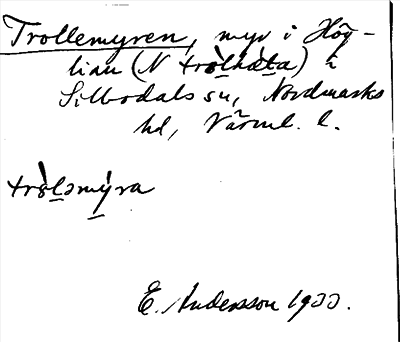 Trollemyren, myr i Hög-
lian (N tròlhæ̀ta) i
Silbodals sn, Nordmarks
hd, Värml. l.
tròləmýra
E. Andersson 1933.